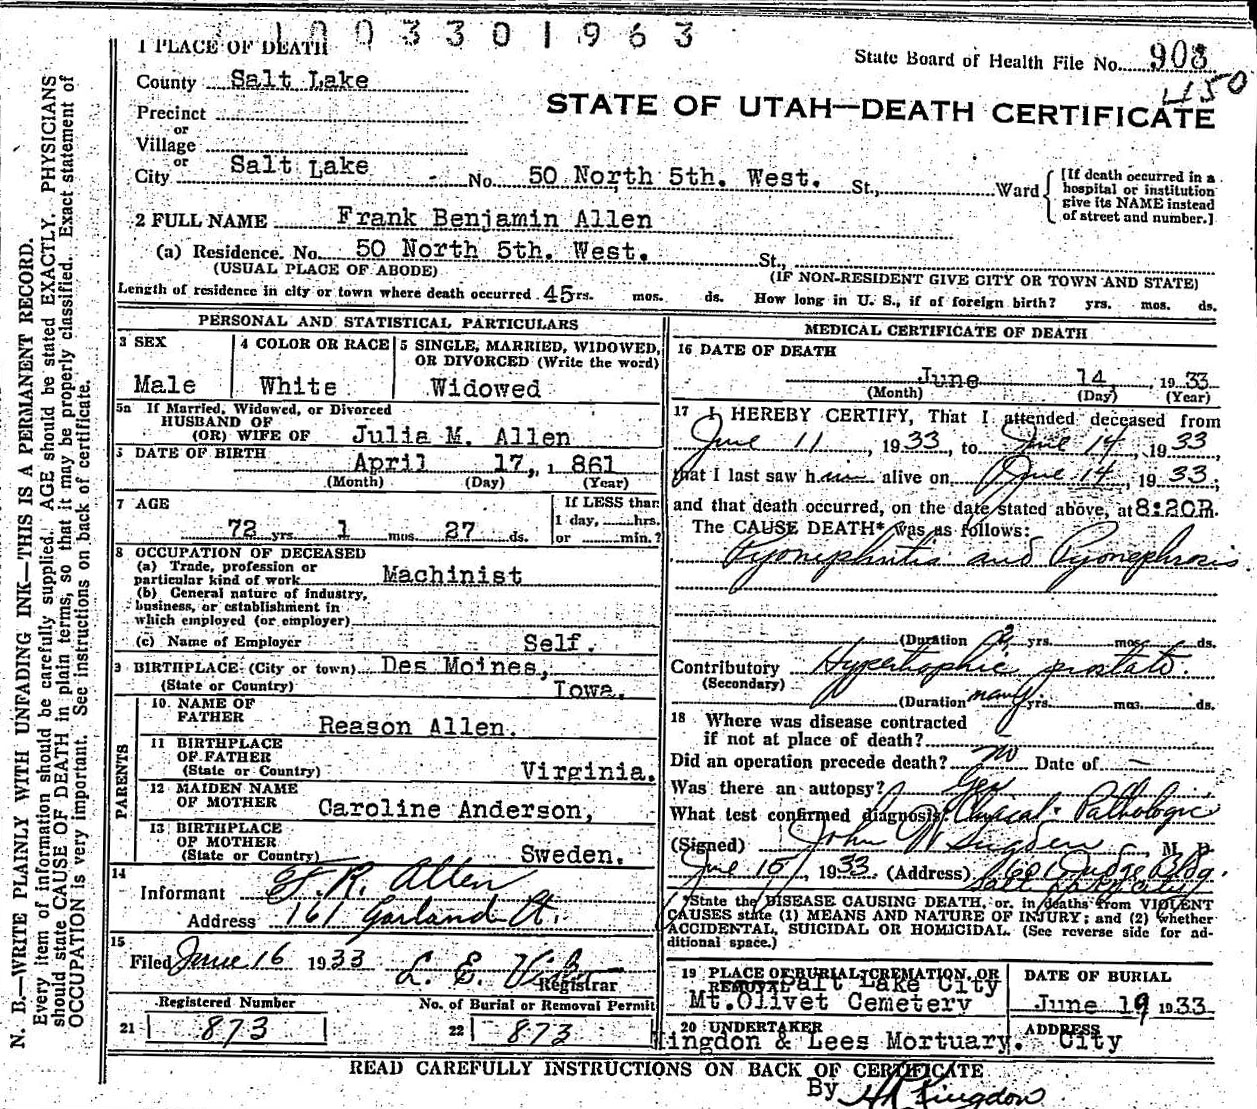 1003301963
1 PLACE OF DEATH
State Board of Health File No. 903
450
County Salt Lake
STATE OF UTAH—DEATH CERTIFICATE
Precinct
or
Village
or
City Salt Lake No. 50 North 5th. West. St., Ward
[If death occurred in a
hospital or institution
give its NAME instead
of street and number.]
2 FULL NAME Frank Benjamin Allen
(a) Residence. No. 50 North 5th. West. St.,
(USUAL PLACE OF ABODE) (IF NON-RESIDENT GIVE CITY OR TOWN AND STATE)
Length of residence in city or town where death occurred 45 yrs. mos. ds. How long in U. S., if of foreign birth? yrs. mos. ds.
PERSONAL AND STATISTICAL PARTICULARS
3 SEX
Male
4 COLOR OR RACE
White
5 SINGLE, MARRIED, WIDOWED,
OR DIVORCED (Write the word)
Widowed
5a If Married, Widowed, or Divorced
HUSBAND OF
(OR) WIFE OF Julia M. Allen
6 DATE OF BIRTH
April 17, 1861
(Month) (Day) (Year)
7 AGE
72 yrs. 1 mos. 27 ds.
If LESS than
1 day, hrs.
or min.?
8 OCCUPATION OF DECEASED
(a) Trade, profession or
particular kind of work Machinist
(b) General nature of industry,
business, or establishment in
which employed (or employer)
(c) Name of Employer Self.
9 BIRTHPLACE (City or town) Des Moines,
(State or Country) Iowa.
PARENTS
10 NAME OF
FATHER Reason Allen.
11 BIRTHPLACE
OF FATHER
(State or Country) Virginia.
12 MAIDEN NAME
OF MOTHER Caroline Anderson,
13 BIRTHPLACE
OF MOTHER
(State or Country) Sweden.
14
Informant F. R. Allen
Address 161 Garland Ct.
15
Filed June 16 1933 L. E.
Registrar
Registered Number
21 873
No. of Burial or Removal Permit
22 873
MEDICAL CERTIFICATE OF DEATH
16 DATE OF DEATH
June 14, 1933
(Month) (Day) (Year)
17 I HEREBY CERTIFY, That I attended deceased from
June 11, 1933 to June 14, 1933,
that I last saw him alive on June 14, 1933;
and that death occurred, on the date stated above, at 8:20P.m.
The CAUSE DEATH* was as follows:
Pyonephritis and Pyonephrosis.
(Duration yrs. mos. ds.
Contributory Hypertrophic prostate.
(Secondary)
(Duration many yrs. mos. ds.
18 Where was disease contracted
if not at place of death?
Did an operation precede death? no Date of —
Was there an autopsy? Yes
What test confirmed diagnosis? Clinical - Pathologic
(Signed) John W Sugden, M. D.
June 15, 1933. (Address) Judge Bldg.
Salt Lake City
*State the DISEASE CAUSING DEATH, or, in deaths from VIOLENT
CAUSES state (1) MEANS AND NATURE OF INJURY; and (2) whether
ACCIDENTAL, SUICIDAL OR HOMICIDAL. (See reverse side for ad-
ditional space.)
19 PLACE OF BURIAL, CREMATION, OR
REMOVAL Salt Lake City
Mt. Olivet Cemetery
DATE OF BURIAL
June 19 1933
20 UNDERTAKER
Kingdon & Lees Mortuary.
ADDRESS
City
READ CAREFULLY INSTRUCTIONS ON BACK OF CERTIFICATE
By H R Kingdon
N. B.—WRITE PLAINLY WITH UNFADING INK—THIS IS A PERMANENT RECORD.
Every item of information should be carefully supplied. AGE should be stated EXACTLY. PHYSICIANS
should state CAUSE OF DEATH in plain terms, so that it may be properly classified. Exact statement of
OCCUPATION is very important. See instructions on back of certificate.